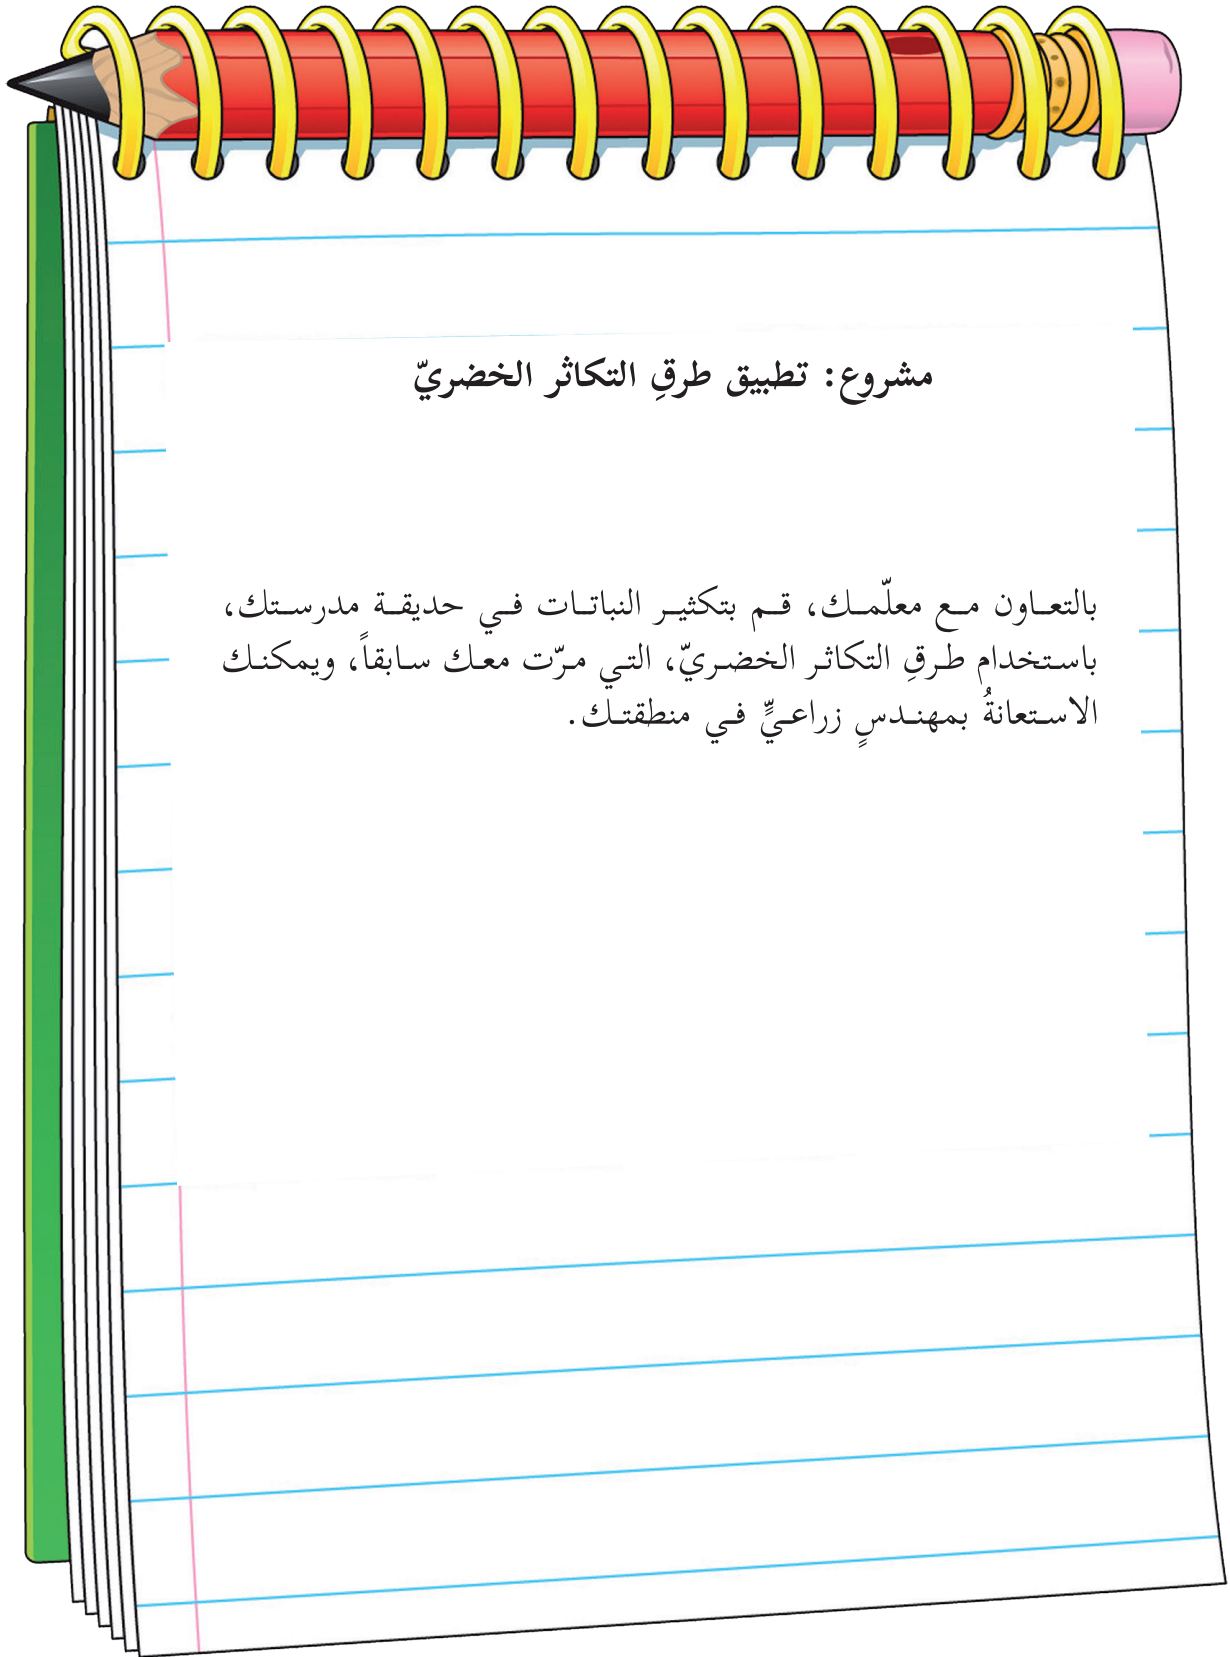 مشروع: تطبيق طرقِ التكاثر الخضريّ
بالتعاون مع معلّمك، قم بتكثير النباتات في حديقة مدرستك،
باستخدام طرقِ التكاثر الخضريّ، التي مرّت معك سابقاً، ويمكنك
الاستعانةُ بمهندسٍ زراعيٍّ في منطقتك.